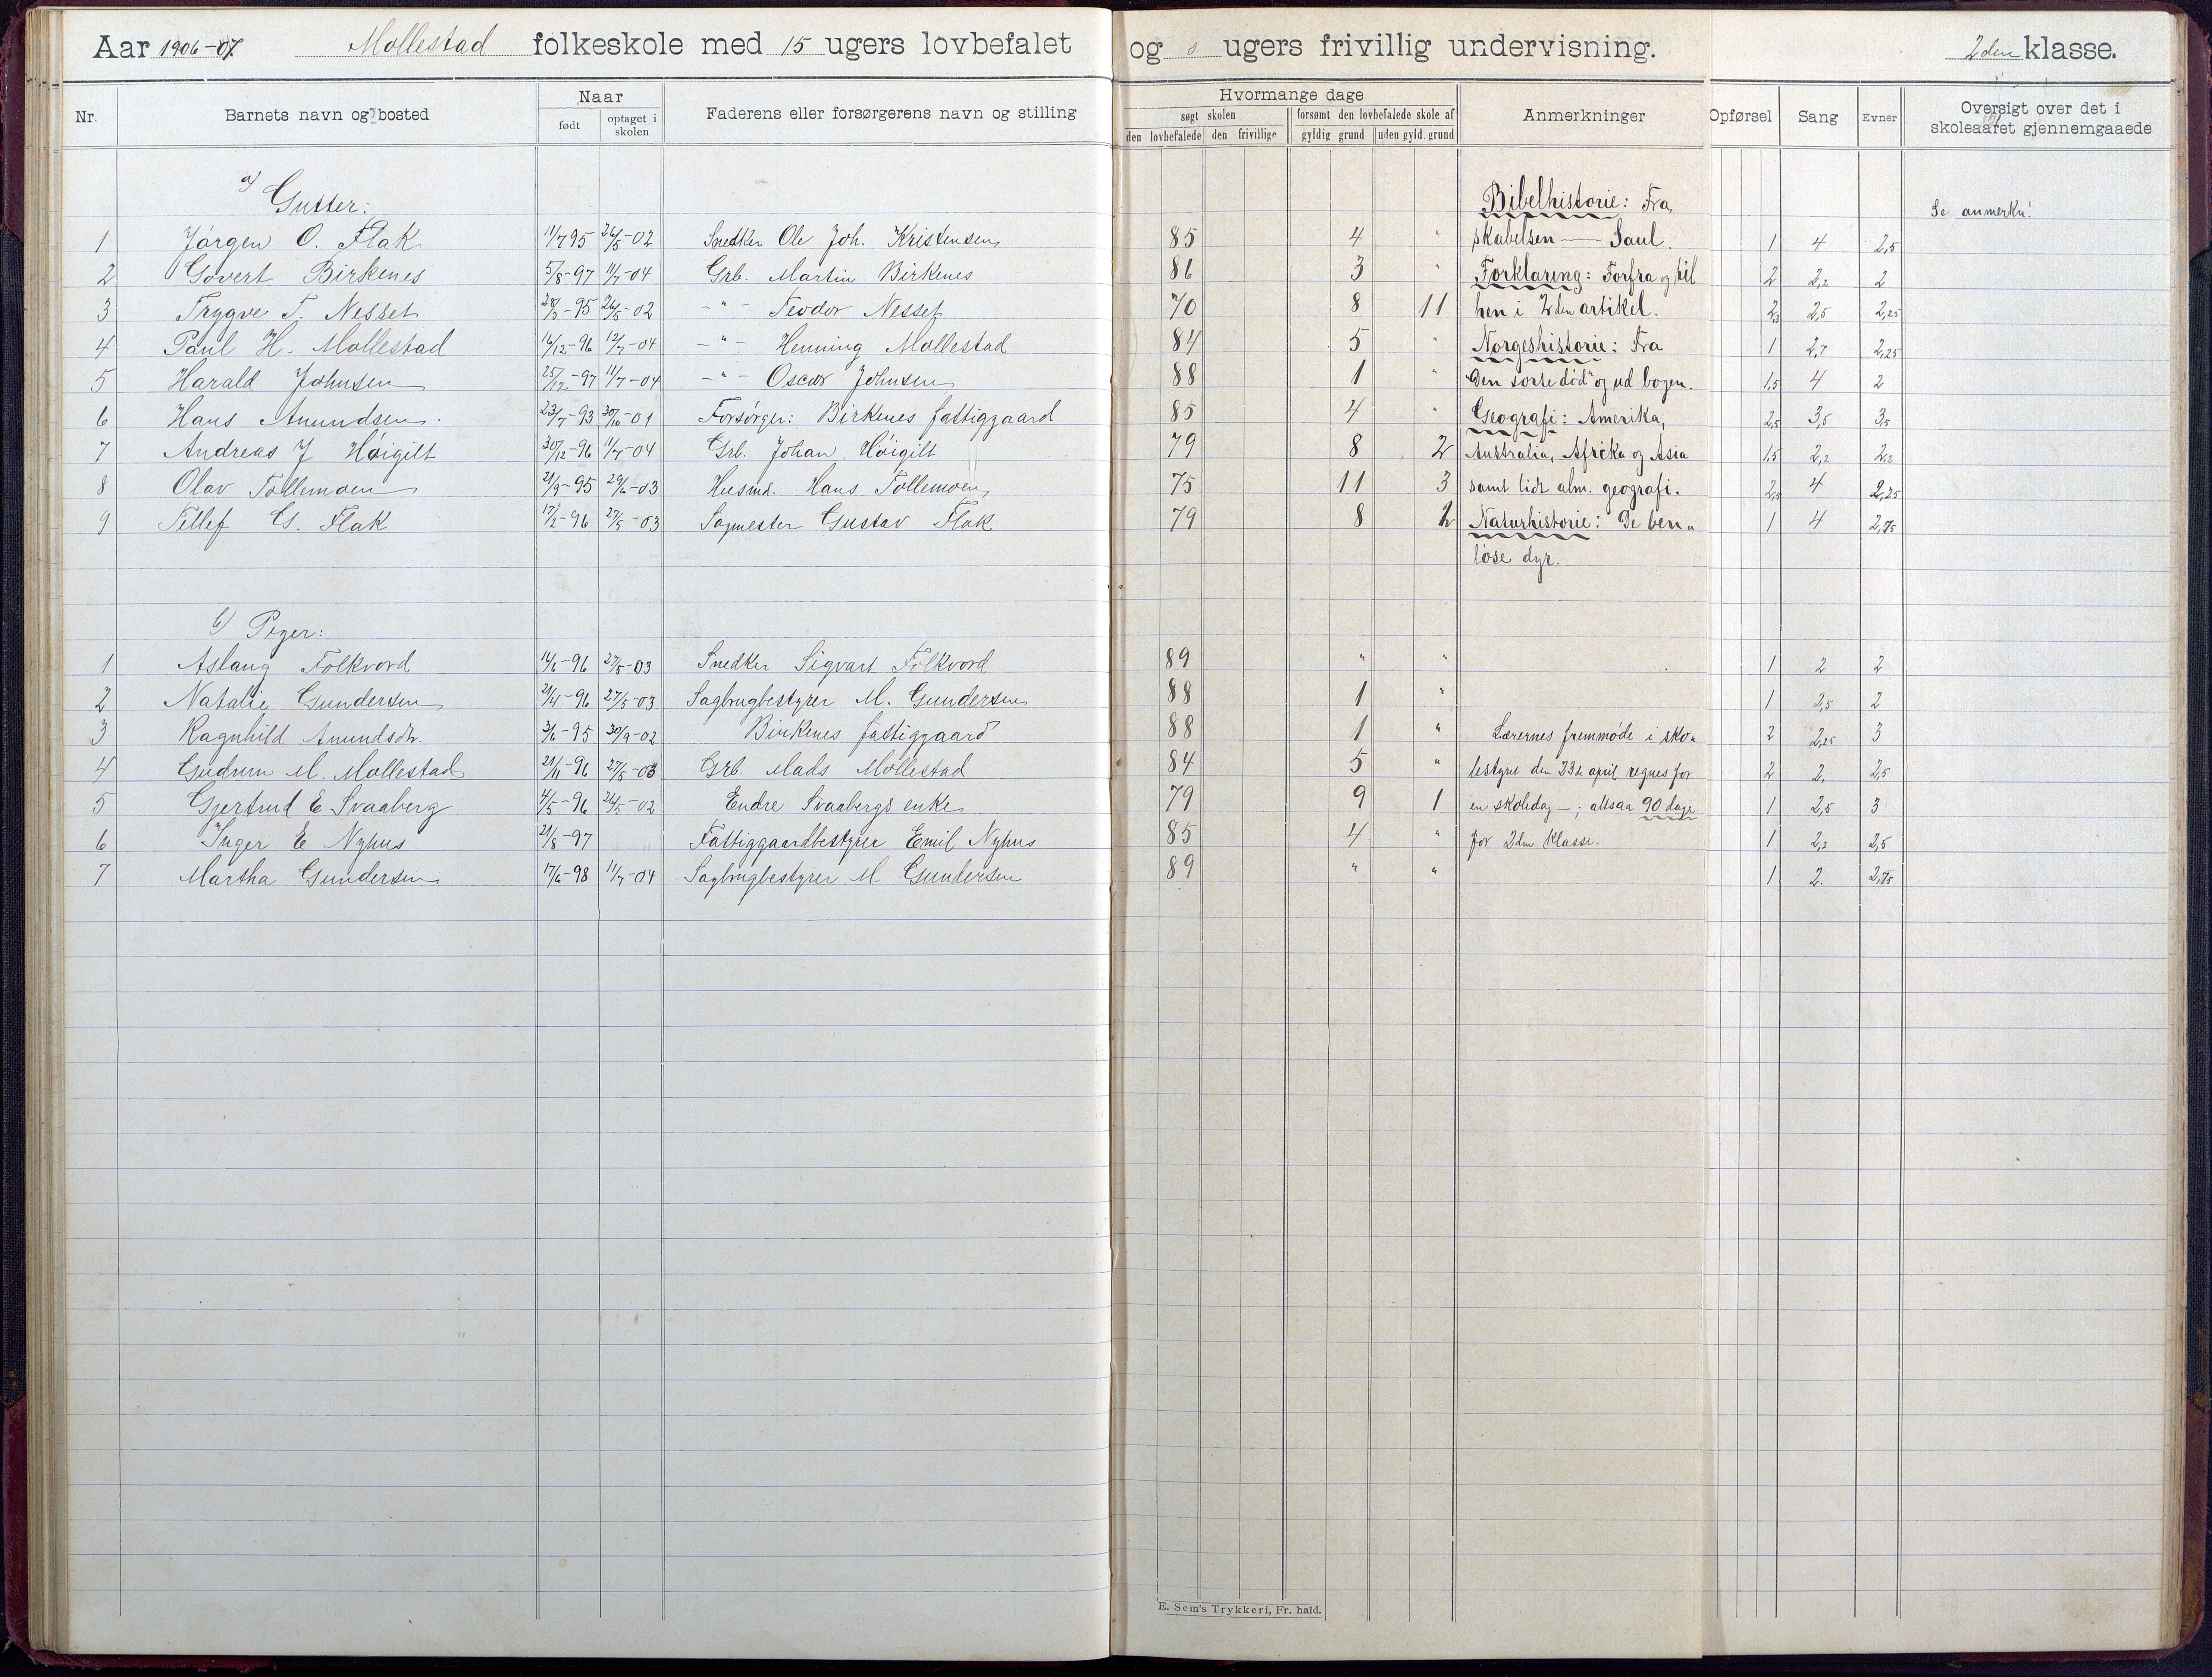 Aar 1906-07. Mollestad folkeskole med 15 ugers lovbefalet og 0 ugers frivillig undervisning. 2den klasse.
Nr. Barnets navn og bosted Naar født optaget i skolen Faderens eller forsørgerens navn og stilling Hvormange dage søgt skolen den lovbefalede den frivillige forsømt den lovbefalede skole af gyldig grund uden gyld. grund Anmerkninger Opførsel Sang Evner Oversigt over det i skoleaaret gjennemgaaede
a) Gutter: Bibelhistorie: Fra Se anmerkn!
1 Jørgen O. Flak 11/7 95 26/5-02 Snedker Ole Joh. Kristensen 85 4 " skabelsen — Saul. 1 4 2,5
2 Govert Birkenes 5/8-97 11/7-04 Grb. Martin Birkenes 86 3 " Forklaring: Forfra og til 2 2,2 2
3 Trygve T. Nesset 28/3-95 26/5-02 -"- Teodor Nesset 70 8 11 hen i 2den artikel. 2,3 2,5 2,25
4 Paul H. Mollestad 16/12-96 12/7-04 -"- Henning Mollestad 84 5 " Norgeshistorie: Fra 1 2,7 2,25
5 Harald Johnsen 25/12-97 11/7-04 -"- Oscar Johnsen 88 1 " "Den sorte død" og ud bogen. 1,5 4 2
6 Hans Amundsen 23/7-93 30/10-01 Forsørger: Birkenes fattiggaard 85 4 " Geografi: Amerika, 2,5 3,5 3,5
7 Andreas J Høigilt 30/12-96 11/7-04 Grb. Johan Høigilt 79 8 2 Australia, Afrika og Asia 1,5 2,2 2,2
8 Olav Tollemoen 21/9-95 29/6-03 Husmd. Hans Tollemoen 75 11 3 samt lidt alm. geografi. 2,5 4 2,25
9 Tellef G. Flak 17/2-96 27/5-03 Sagmester Gustav Flak 79 8 2 Naturhistorie: De ben- 1 4 2,75
løse dyr.
b) Piger:
1 Aslaug Folkvord 14/6-96 27/5-03 Snedker Sigvart Folkvord 89 " " 1 2 2
2 Natalie Gundersen 21/4-96 27/5-03 Sagbrugbestyrer M. Gundersen 88 1 " 1 2,5 2
3 Ragnhild Amundsdtr. 3/6-95 30/9-02 Birkenes fattiggaard 88 1 " Lærernes fremmøde i sko- 2 2,25 3
4 Gudrun M. Mollestad 21/11-96 27/5-03 Grb. Mads Mollestad 84 5 " lestyret den 23de april regnes for 2 2, 2,5
5 Gjertrud E Svaaberg 4/5-96 26/5-02 Endre Svaabergs enke 79 9 1 en skoledag -; altsaa 90 dage 1 2,5 3
6 Inger E Nyhus 21/8-97 Fattiggaardbestyrer Emil Nyhus 85 4 " for 2den Klasse. 1 2,2 2,5
7 Martha Gundersen 17/6-98 11/7-04 Sagbrugbestyrer M Gundersen 89 " " 1 2. 2,75
E. Sem's Trykkeri, Fr. hald.